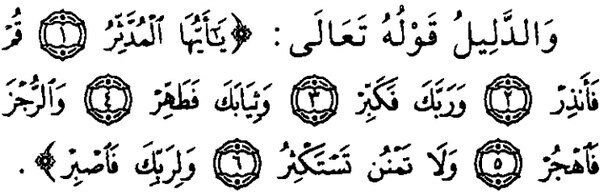 وَالدَّلِيلُ قَوْلُهُ تَعَالَى: ﴿يَٰٓأَيُّهَا ٱلْمُدَّثِّرُ ۝١ قُمْ
فَأَنذِرْ ۝٢ وَرَبَّكَ فَكَبِّرْ ۝٣ وَثِيَابَكَ فَطَهِّرْ ۝٤ وَٱلرُّجْزَ
فَٱهْجُرْ ۝٥ وَلَا تَمْنُن تَسْتَكْثِرُ ۝٦ وَلِرَبِّكَ فَٱصْبِرْ﴾.